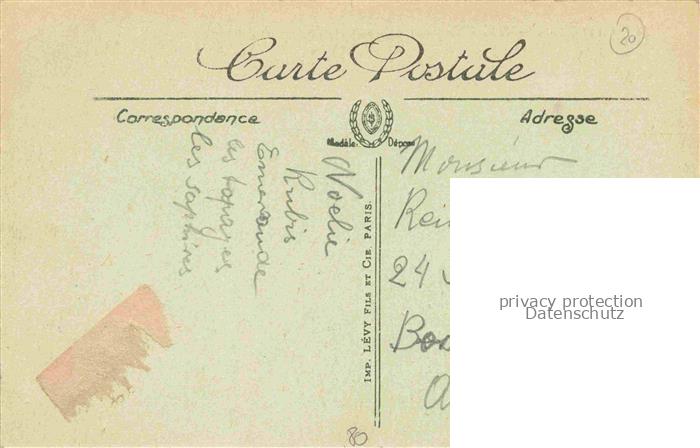 20
Carte Postale
Correspondance
Adresse
Modèle Déposé
Noelie
Rubis
Emeraude
les topazes
les saphires
IMP. LÉVY FILS ET CIE. PARIS.
Monsieur
24
privacy protection
Datenschutz
80